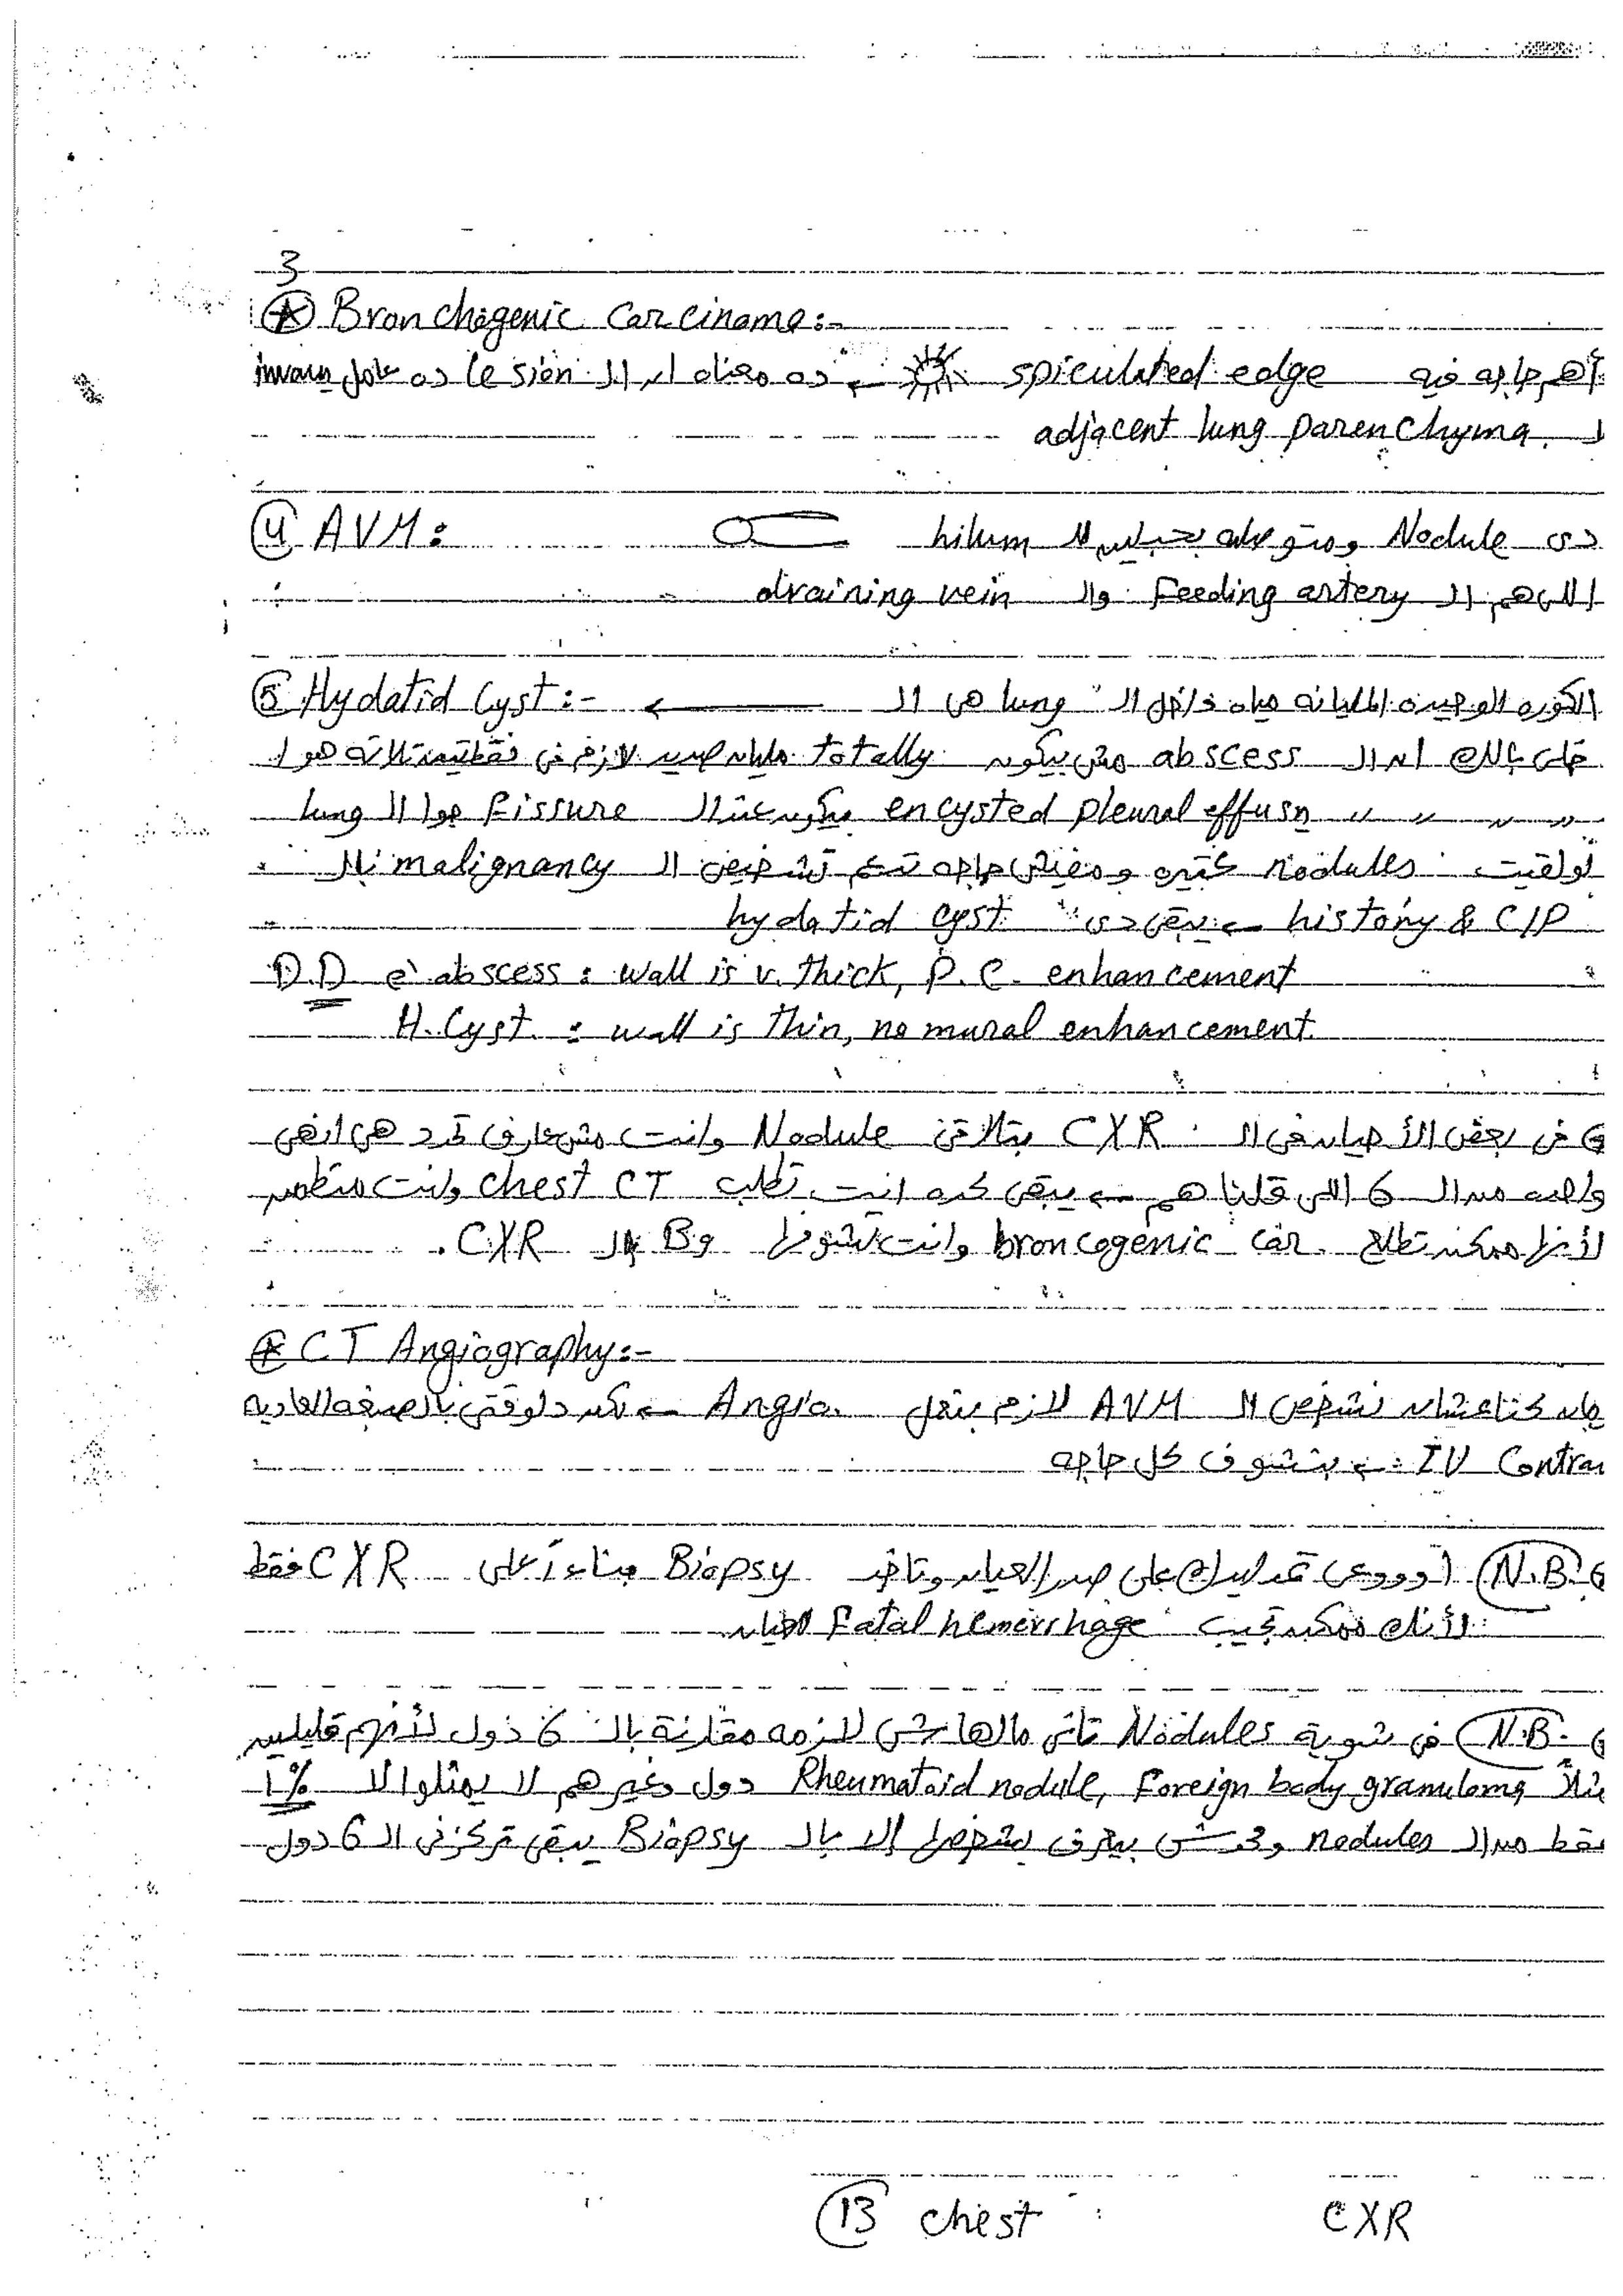 3
* Bronchogenic Carcinoma:-
أهم حاجه فيه spiculated edge ← ده معناه ان الـ lesion ده عامل invasion
لـ adjacent lung parenchyma.
4 AVM:
دى Nodule ومتوصله بحبلين للـ hilum
اللى هم الـ Feeding artery والـ draining vein
5 Hydatid Cyst:-
الكوره الوحيده المليانه مياه داخل الـ lung هى الـ ←
خلى بالك ان الـ abscess مش بيكون totally مليان صديد لازم فى هوا
" " " " encysted pleural effusn بيكون عند الـ fissure جوا الـ lung
لو لقيت nodules كتيره ومفيش حاجه تدعم تشخيص الـ malignancy بالـ
history & C/P ← يبقى دى hydatid cyst
D.D e abscess : wall is v. thick, P.C. enhancement
H. Cyst : wall is thin, no mural enhancement.
فى بعض الأحيان فى الـ CXR بتلاقى Nodule وانت مش عارف تحدد هى انهى
واحده من الـ 6 اللى قلناهم ← يبقى كده انت تطلب chest CT وانت مطمن
لأنها ممكن تطلع broncogenic car. وانت تشوفها بالـ CXR.
* CT Angiography:-
كنا عشان نشخص الـ AVM لازم بنعمل Angio. ← لكن دلوقتى بالصبغه العاديه
IV Contra ← بتشوف كل حاجه
N.B. أوووعى تمد ايدك على صدر العيان وتاخد Biopsy بناءاً على CXR فقط
لأنك ممكن تجيب Fatal hemorrhage للعيان
N.B. فى شوية Nodules تانى مالهاش لازمه مقارنة بالـ 6 دول لأنهم قليلين
مثلاً Rheumatoid nodule, Foreign body granuloma دول وغيرهم لا يمثلوا الا 1%
فقط من الـ nodules ومحدش بيعرف يشخصها إلا بالـ Biopsy يبقى تركز فى الـ 6 دول
13 chest CXR